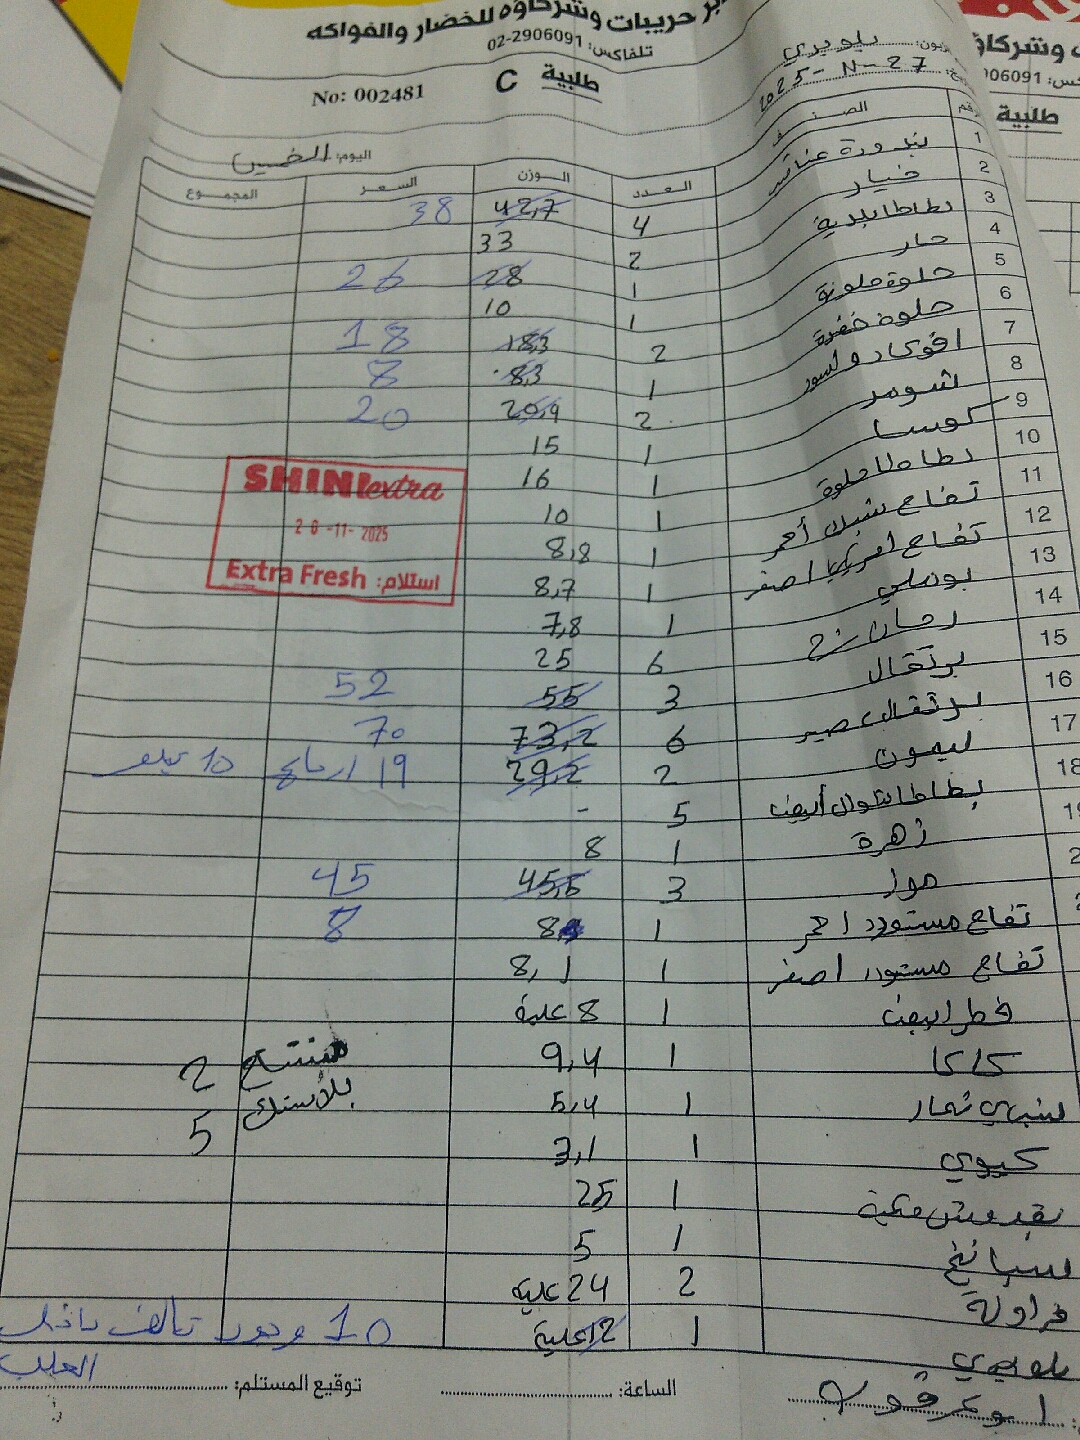 بر حريبات وشركاؤه للخضار والفواكه
تلفاكس: 02-2906091
طلبية C
No: 002481
بلوبيري
2025-11-27
اليوم: الخميس
رقم الصنف العدد الوزن السعر المجموع
1 بندورة عناقيد 4 42,7 38
2 خيار 2 33
3 بطاطا بلدية 1 28 26
4 حار 1 10
5 حلوة ملونة 2 18,3 18
6 حلوة خضرة 1 8,3 8
7 افوكادو 2 20,9 20
8 شومر 1 15
9 كوسا 1 16
10 بطاطا حلوة 1 10
11 تفاح أحمر 1 8,8
12 تفاح اصفر 1 8,7
13 بوملي 1 7,8
14 رمان 6 25
15 برتقال 3 55 52
16 برتقال عصير 6 73,2 70
17 ليمون 2 29,2 19 ارجاع 10 كيلو
18 بطاطا أبيض 5 -
زهرة 1 8
موز 3 45,5 45
تفاح مستورد احمر 1 8 8
تفاح مستورد اصفر 1 8,1
فطر ابيض 1 8 علبة
كاكا 1 9,4
1 5,4
كيوي 1 3,1
بقدونس 1 25
سبانخ 1 5
فراولة 2 24 علبة
بلوبيري 1 12 علبة
2
بلاستيك 5
10 وجود تالف داخل العلب
SHINI extra
28-11-2025
Extra Fresh استلام:
الساعة:
توقيع المستلم:
وشركاؤ
طلبية